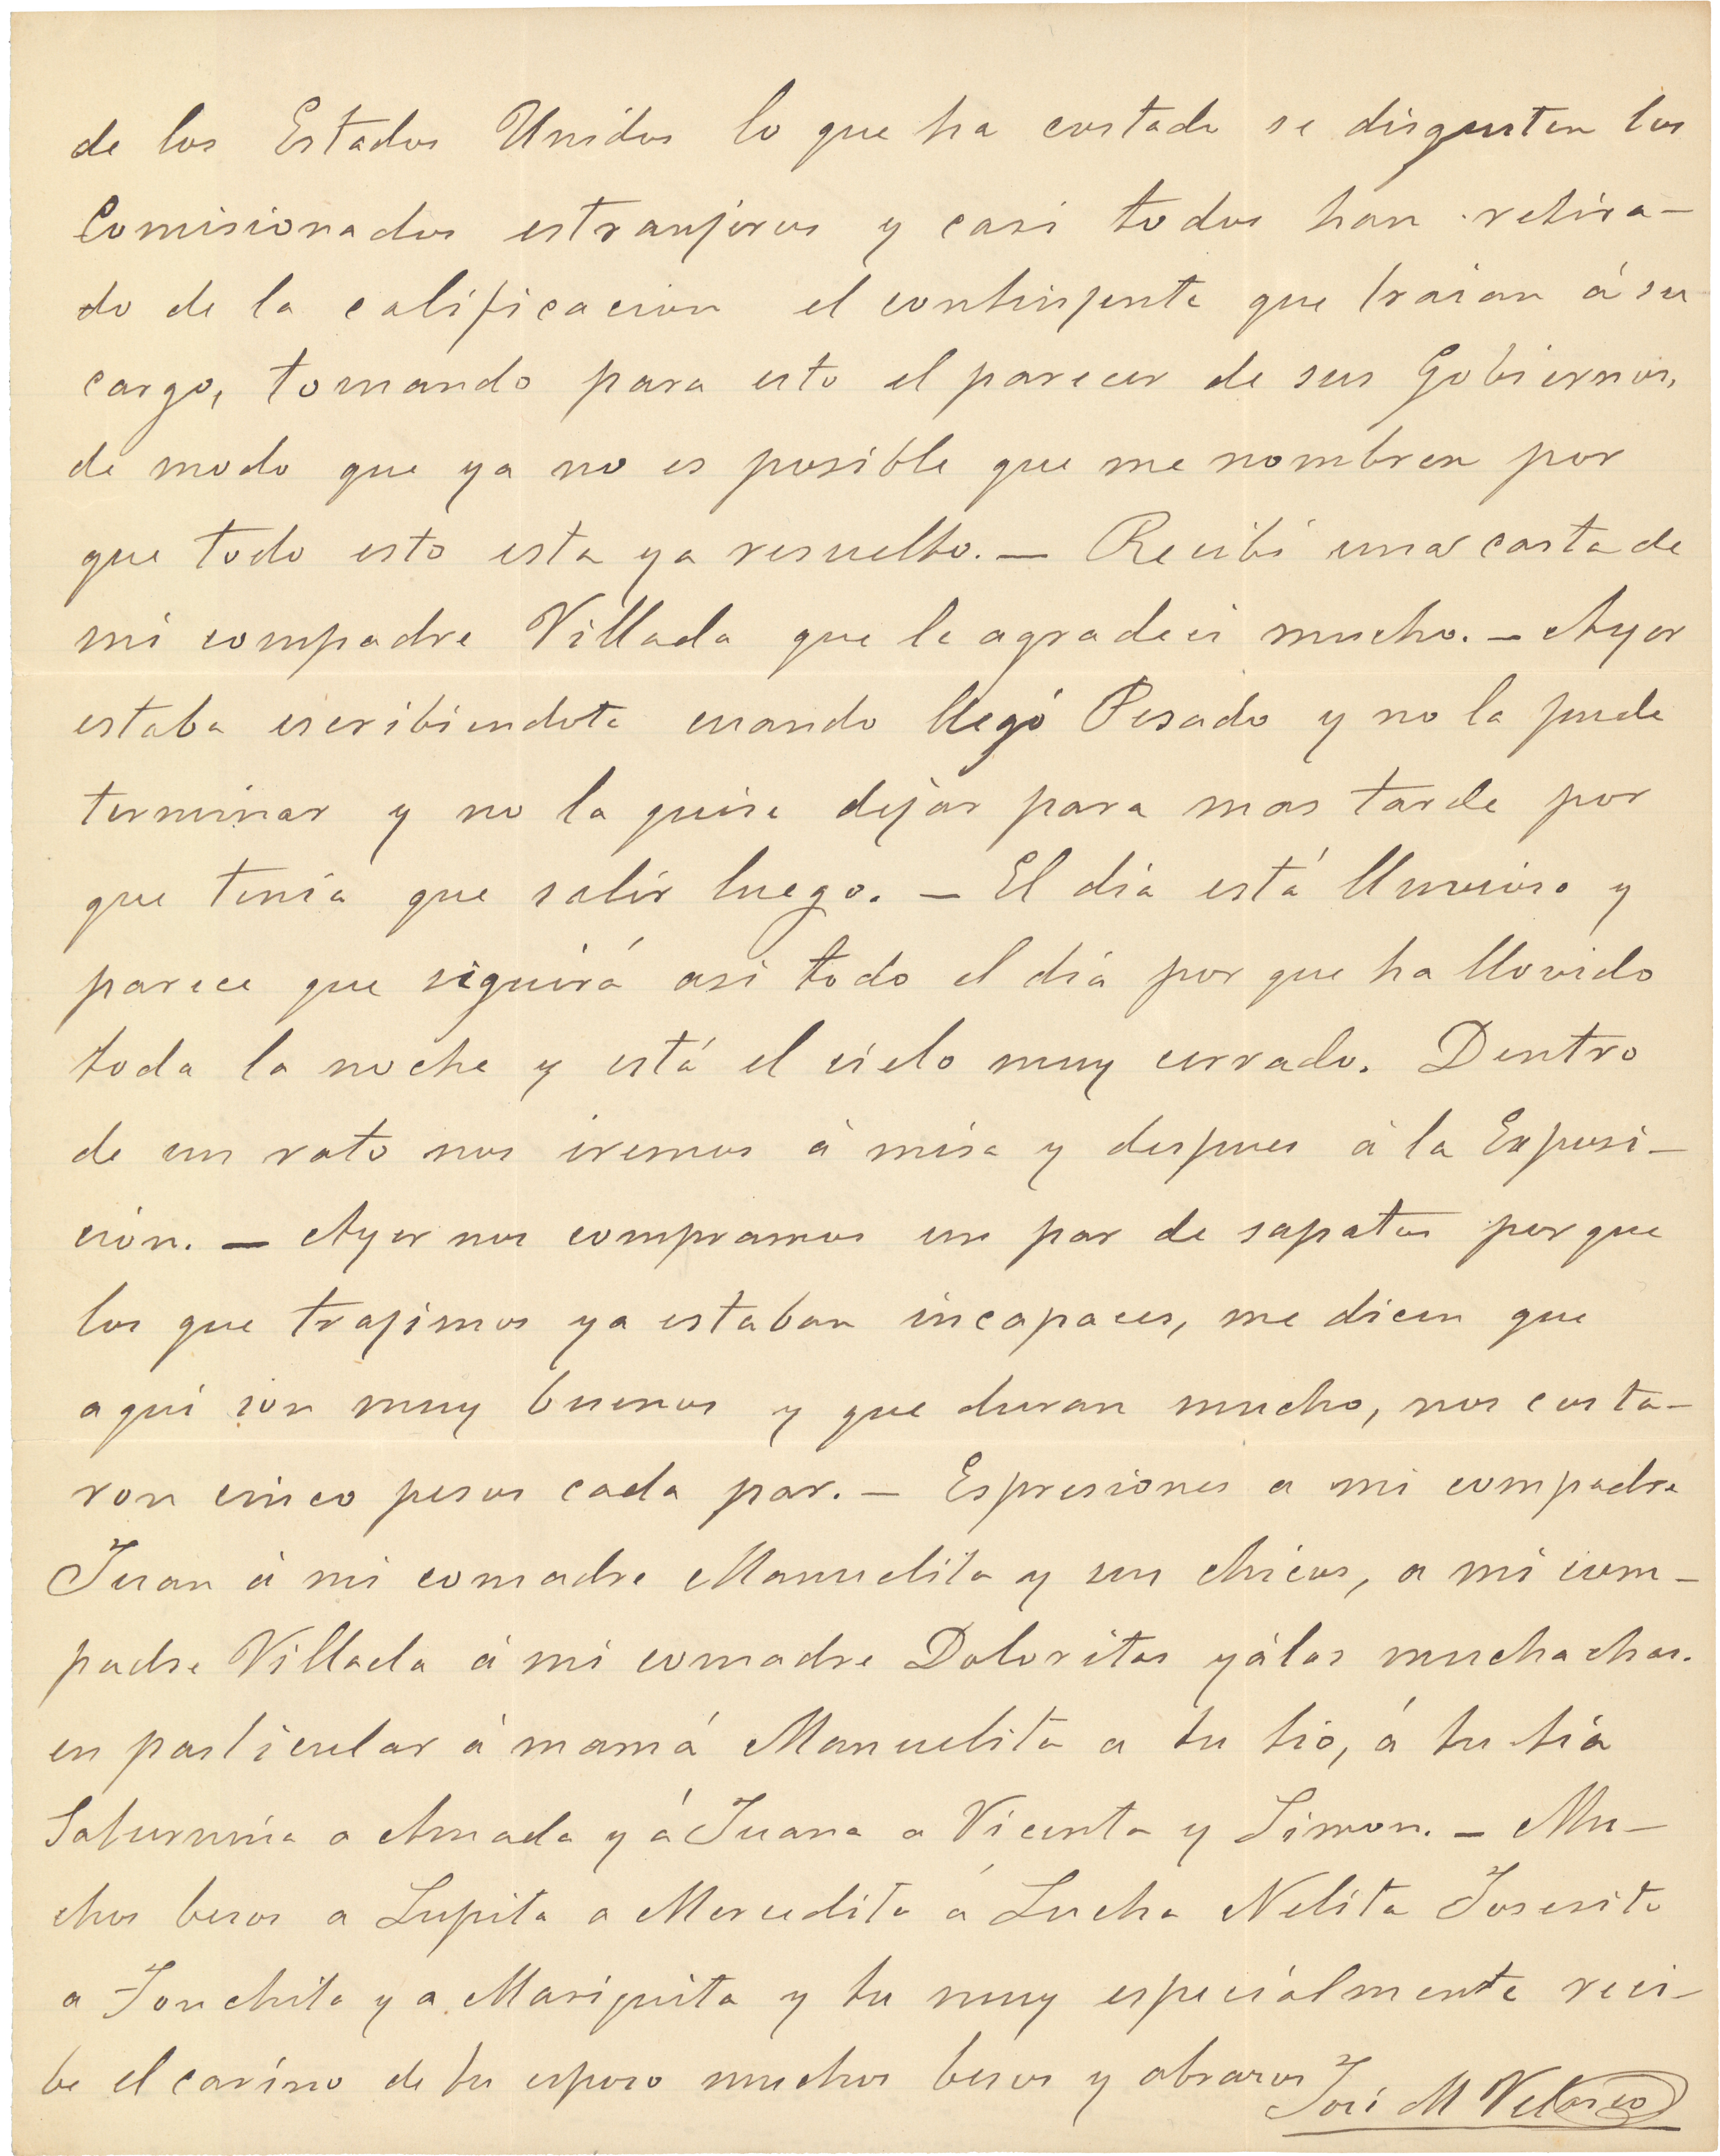 de los Estados Unidos lo que ha costado se disgusten los
Comisionados estranjeros y casi todos han retira-
do de la calificacion el continjente que traian á su
cargo, tomando para esto el parecer de sus Gobiernos,
de modo que ya no es posible que me nombren por
que todo esto esta ya resuelto. — Recibí una carta de
mi compadre Villada que le agradeci mucho. — Ayer
estaba escribiendote cuando llegó Pesado y no la pude
terminar y no la quise dejar para mas tarde por
que tenia que salir luego. — El dia está lluvioso y
parece que siguirá asi todo el dia por que ha llovido
toda la noche y está el cielo muy cerrado. Dentro
de un rato nos iremos á misa y despues á la Exposi-
cion. — Ayer nos compramos un par de sapatos porque
los que trajimos ya estaban incapaces, me dicen que
aqui son muy buenos y que duran mucho, nos costa-
ron cinco pesos cada par. — Espresiones a mi compadre
Juan á mi comadre Manuelita y sus chicos, a mi com-
padre Villada á mi comadre Doloritas y á las muchachas.
en particular á mamá Manuelita a tu tio, á tu tia
Saturnina a Amada y á Juana a Vicenta y Simon. — Mu-
chos besos a Lupita a Mercedita á Lucha Nelita Josesito
a Conchita y a Mariquita y tu muy especialmente reci-
be el cariño de tu esposo muchos besos y abrazos
José M Velasco